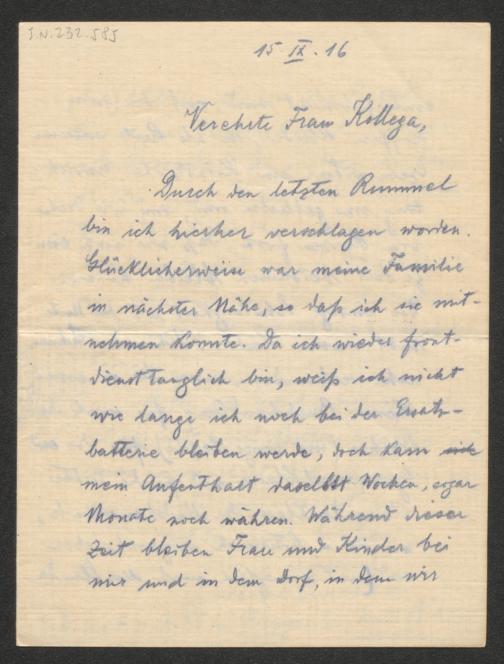 J.N. 232.585
15 IX. 16
Verehrte Frau Kollega,
Durch den letzten Rummel
bin ich hierher verschlagen worden.
Glücklicherweise war meine Familie
in nächster Nähe, so daß ich sie mit-
nehmen konnte. Da ich wieder front-
diensttauglich bin, weiß ich nicht
wie lange ich noch bei der Ersatz-
batterie bleiben werde, doch kann
mein Aufenthalt daselbst Wochen, sogar
Monate noch währen. Während dieser
Zeit bleiben Frau und Kinder bei
mir und in dem Dorf, in dem wir